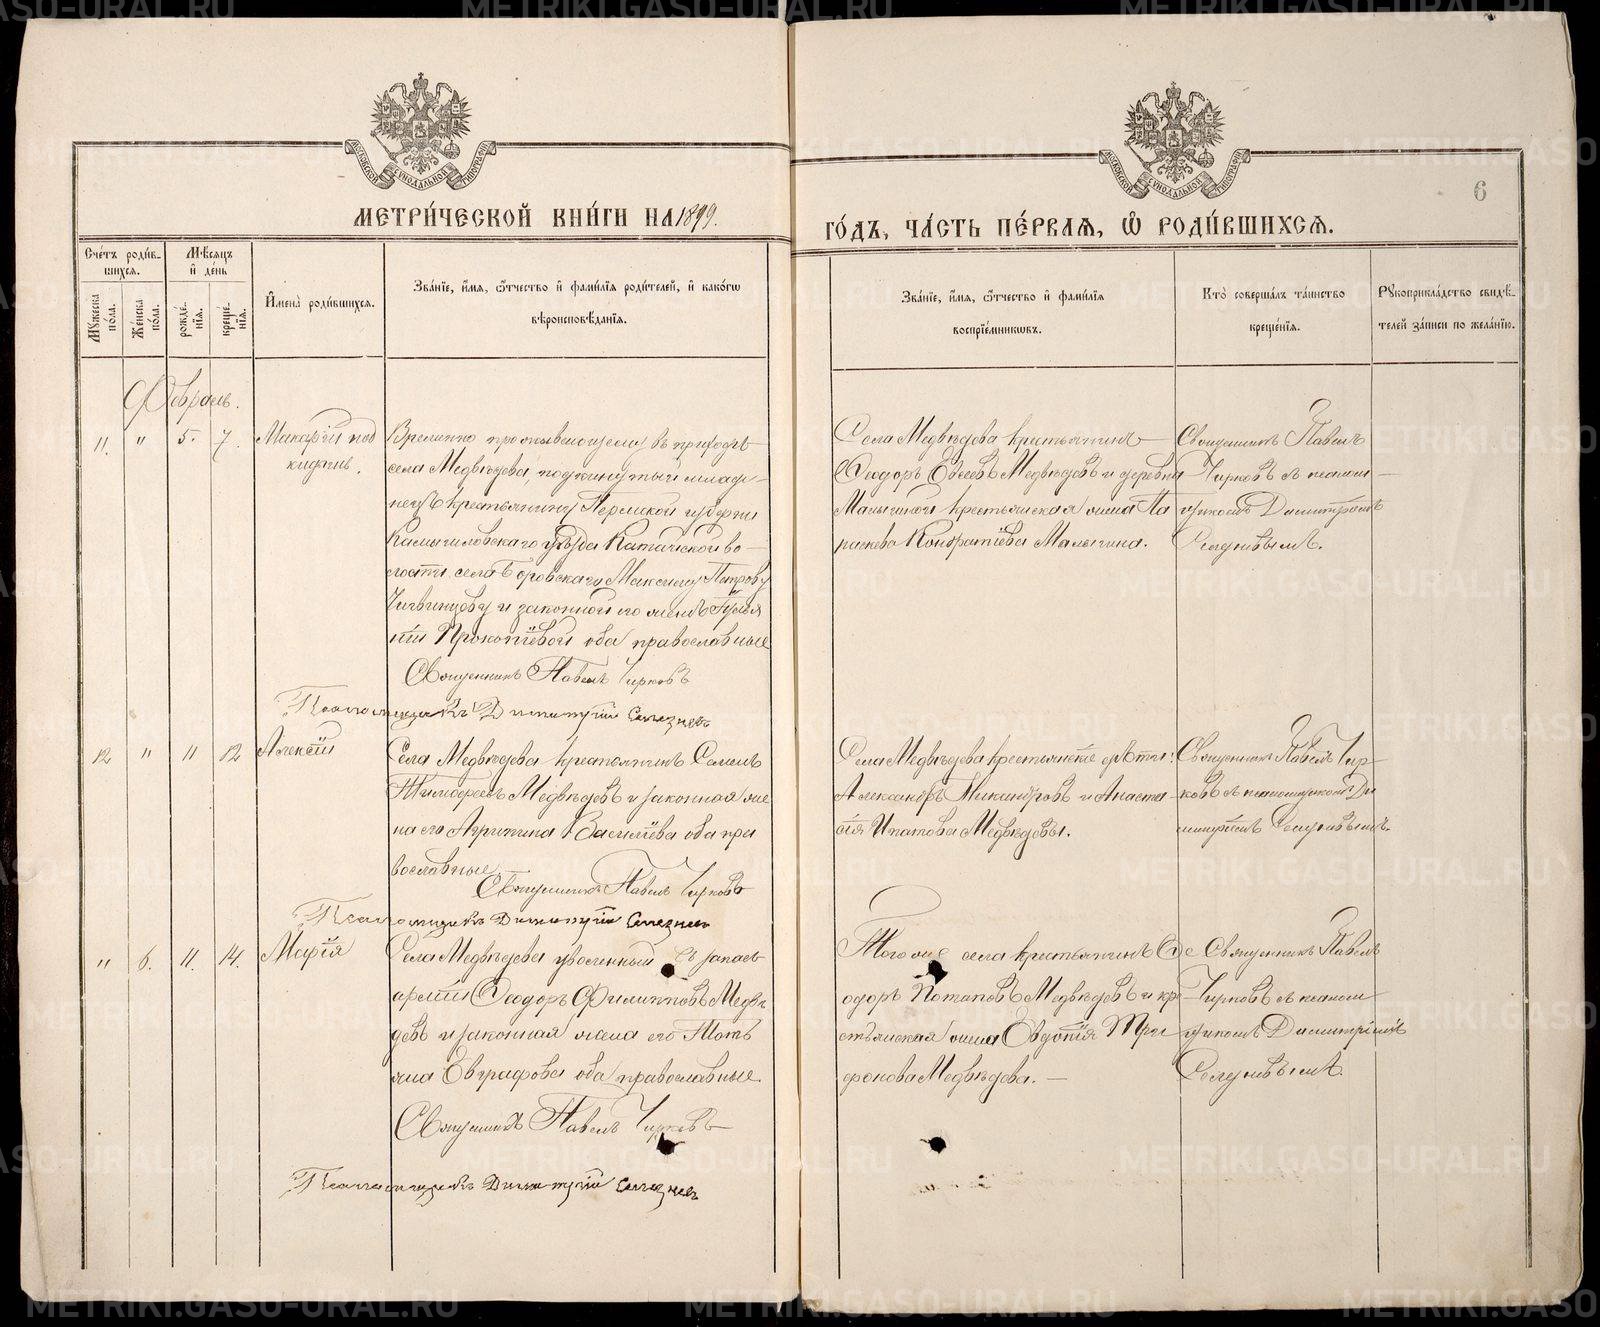 МОСКОВСКОЙ СѴНОДАЛЬНОЙ ТИПОГРАФІИ
МОСКОВСКОЙ СѴНОДАЛЬНОЙ ТИПОГРАФІИ
6
МЕТРИ́ЧЕСКОЙ КНИ́ГИ НА 1899.
ГО́ДЪ, ЧА́СТЬ ПЕ́РВАѦ, Ѡ҆ РОДИ́ВШИХСѦ.
Сче́тъ роди́в-
шихсѧ.
Мѣ́сѧцъ
и҆ де́нь
Мꙋ́жеска
по́ла.
Же́нска
по́ла.
рожде́-
нїѧ.
креще́-
нїѧ.
И҆мена̀ роди́вшихсѧ.
Зва́нїе, и҆́мѧ, ѻ҆́тчество и҆ фами́лїѧ роди́телей, и҆ како́гѡ
вѣроисповѣ́данїѧ.
Зва́нїе, и҆́мѧ, ѻ҆́тчество и҆ фами́лїѧ
воспрїе́мникѡвъ.
Кто̀ соверша́лъ та́инство
креще́нїѧ.
Рꙋкоприкла́дство свидѣ́-
телей за́писи по жела́нїю.
Февраль.
11. " 5. 7.
Макарій под
кидышъ.
Временно проживающему въ приходѣ
села Медвѣдева, подкинутый младе-
нецъ крестьянину Пермской губерніи
Камышловскаго уѣзда Катайской во-
лости села Боровскаго Максиму Петрову
и законной его женѣ
Прокопіевой оба православные
Священникъ Павелъ Чирковъ
Псаломщикъ Димитрій Селезневъ
Села Медвѣдева крестьянинъ
Ѳеодоръ Евсеевъ Медвѣдевъ и деревни
Малыгиной крестьянская жена Па
раскева Кондратіева Малыгина.
Священникъ Павелъ
Чирковъ съ псалом-
щикомъ Димитріемъ
Селезневымъ.
12 " 11 12
Алексій
Села Медвѣдева крестьянинъ Семенъ
Тимофеевъ Медвѣдевъ и законная же
на его Агрипина Василіева оба пра
вославные
Священникъ Павелъ Чирковъ
Псаломщикъ Димитрій Селезневъ
Села Медвѣдева крестьянскіе дѣти:
Александръ Никандровъ и Анаста-
сія Ипатова Медвѣдевы.
Священникъ Павелъ Чир-
ковъ съ псаломщикомъ Ди
митріемъ Селезневымъ.
" 6. 11. 14.
Марія
Села Медвѣдева уволенный въ запасъ
арміи Ѳеодоръ Филипповъ Медвѣ
девъ и законная жена его Тать
яна Евграфова оба православные.
Священникъ Павелъ Чирковъ
Псаломщикъ Димитрій Селезневъ
Того же села крестьянинъ Ѳе
одоръ Потаповъ Медвѣдевъ и кре
стьянская жена Евдокія Три
фонова Медвѣдева. —
Священникъ Павелъ
Чирковъ съ псалом
щикомъ Димитріемъ
Селезневымъ.
METRIKI.GASO-URAL.RU